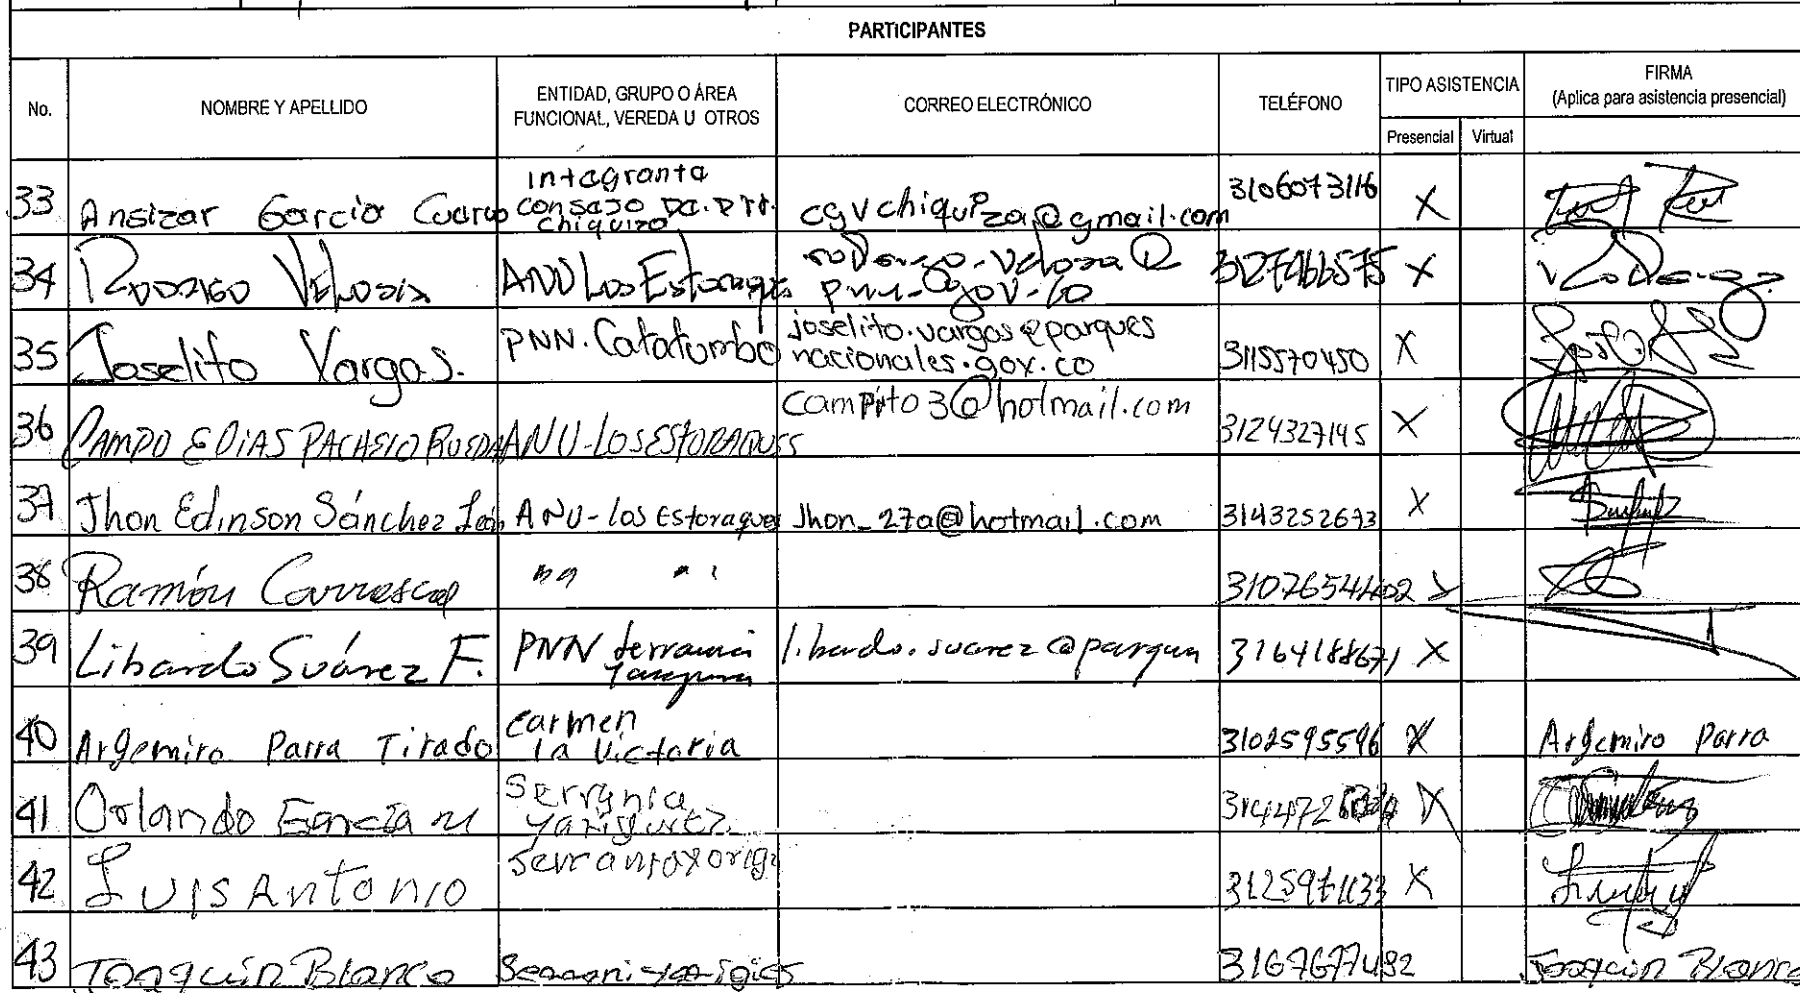 PARTICIPANTES
No. NOMBRE Y APELLIDO ENTIDAD, GRUPO O ÁREA FUNCIONAL, VEREDA U OTROS CORREO ELECTRÓNICO TELÉFONO TIPO ASISTENCIA FIRMA (Aplica para asistencia presencial)
Presencial Virtual
33 Ansizar Garcia Cuervo integranta consejo chiquiza cgvchiquiza@gmail.com 3106073116 X
34 Rodrigo Velosa ANU Los Estoraques 3127466575 X
35 Joselito Vargas. PNN. Catatumbo joselito.vargas@parques nacionales.gov.co 3115570450 X
36 CAMPO ELIAS PACHECO RUEDA ANU-LOS ESTORAQUES campito3@hotmail.com 3124327145 X
37 Jhon Edinson Sánchez León ANU-los Estoraques Jhon_27a@hotmail.com 3143252673 X
38 Ramón Carrascal " " X
39 Libardo Suárez F. PNN serrania libardo.suarez@parques 3164188671 X
40 Argemiro Parra Tirado Carmen la Victoria 3102595596 X Argemiro Parra
41 Orlando García M Serrania Yariguiez X
42 Luis Antonio X
43 Joaquin Blanco 3167677492 Joaquin Blanco